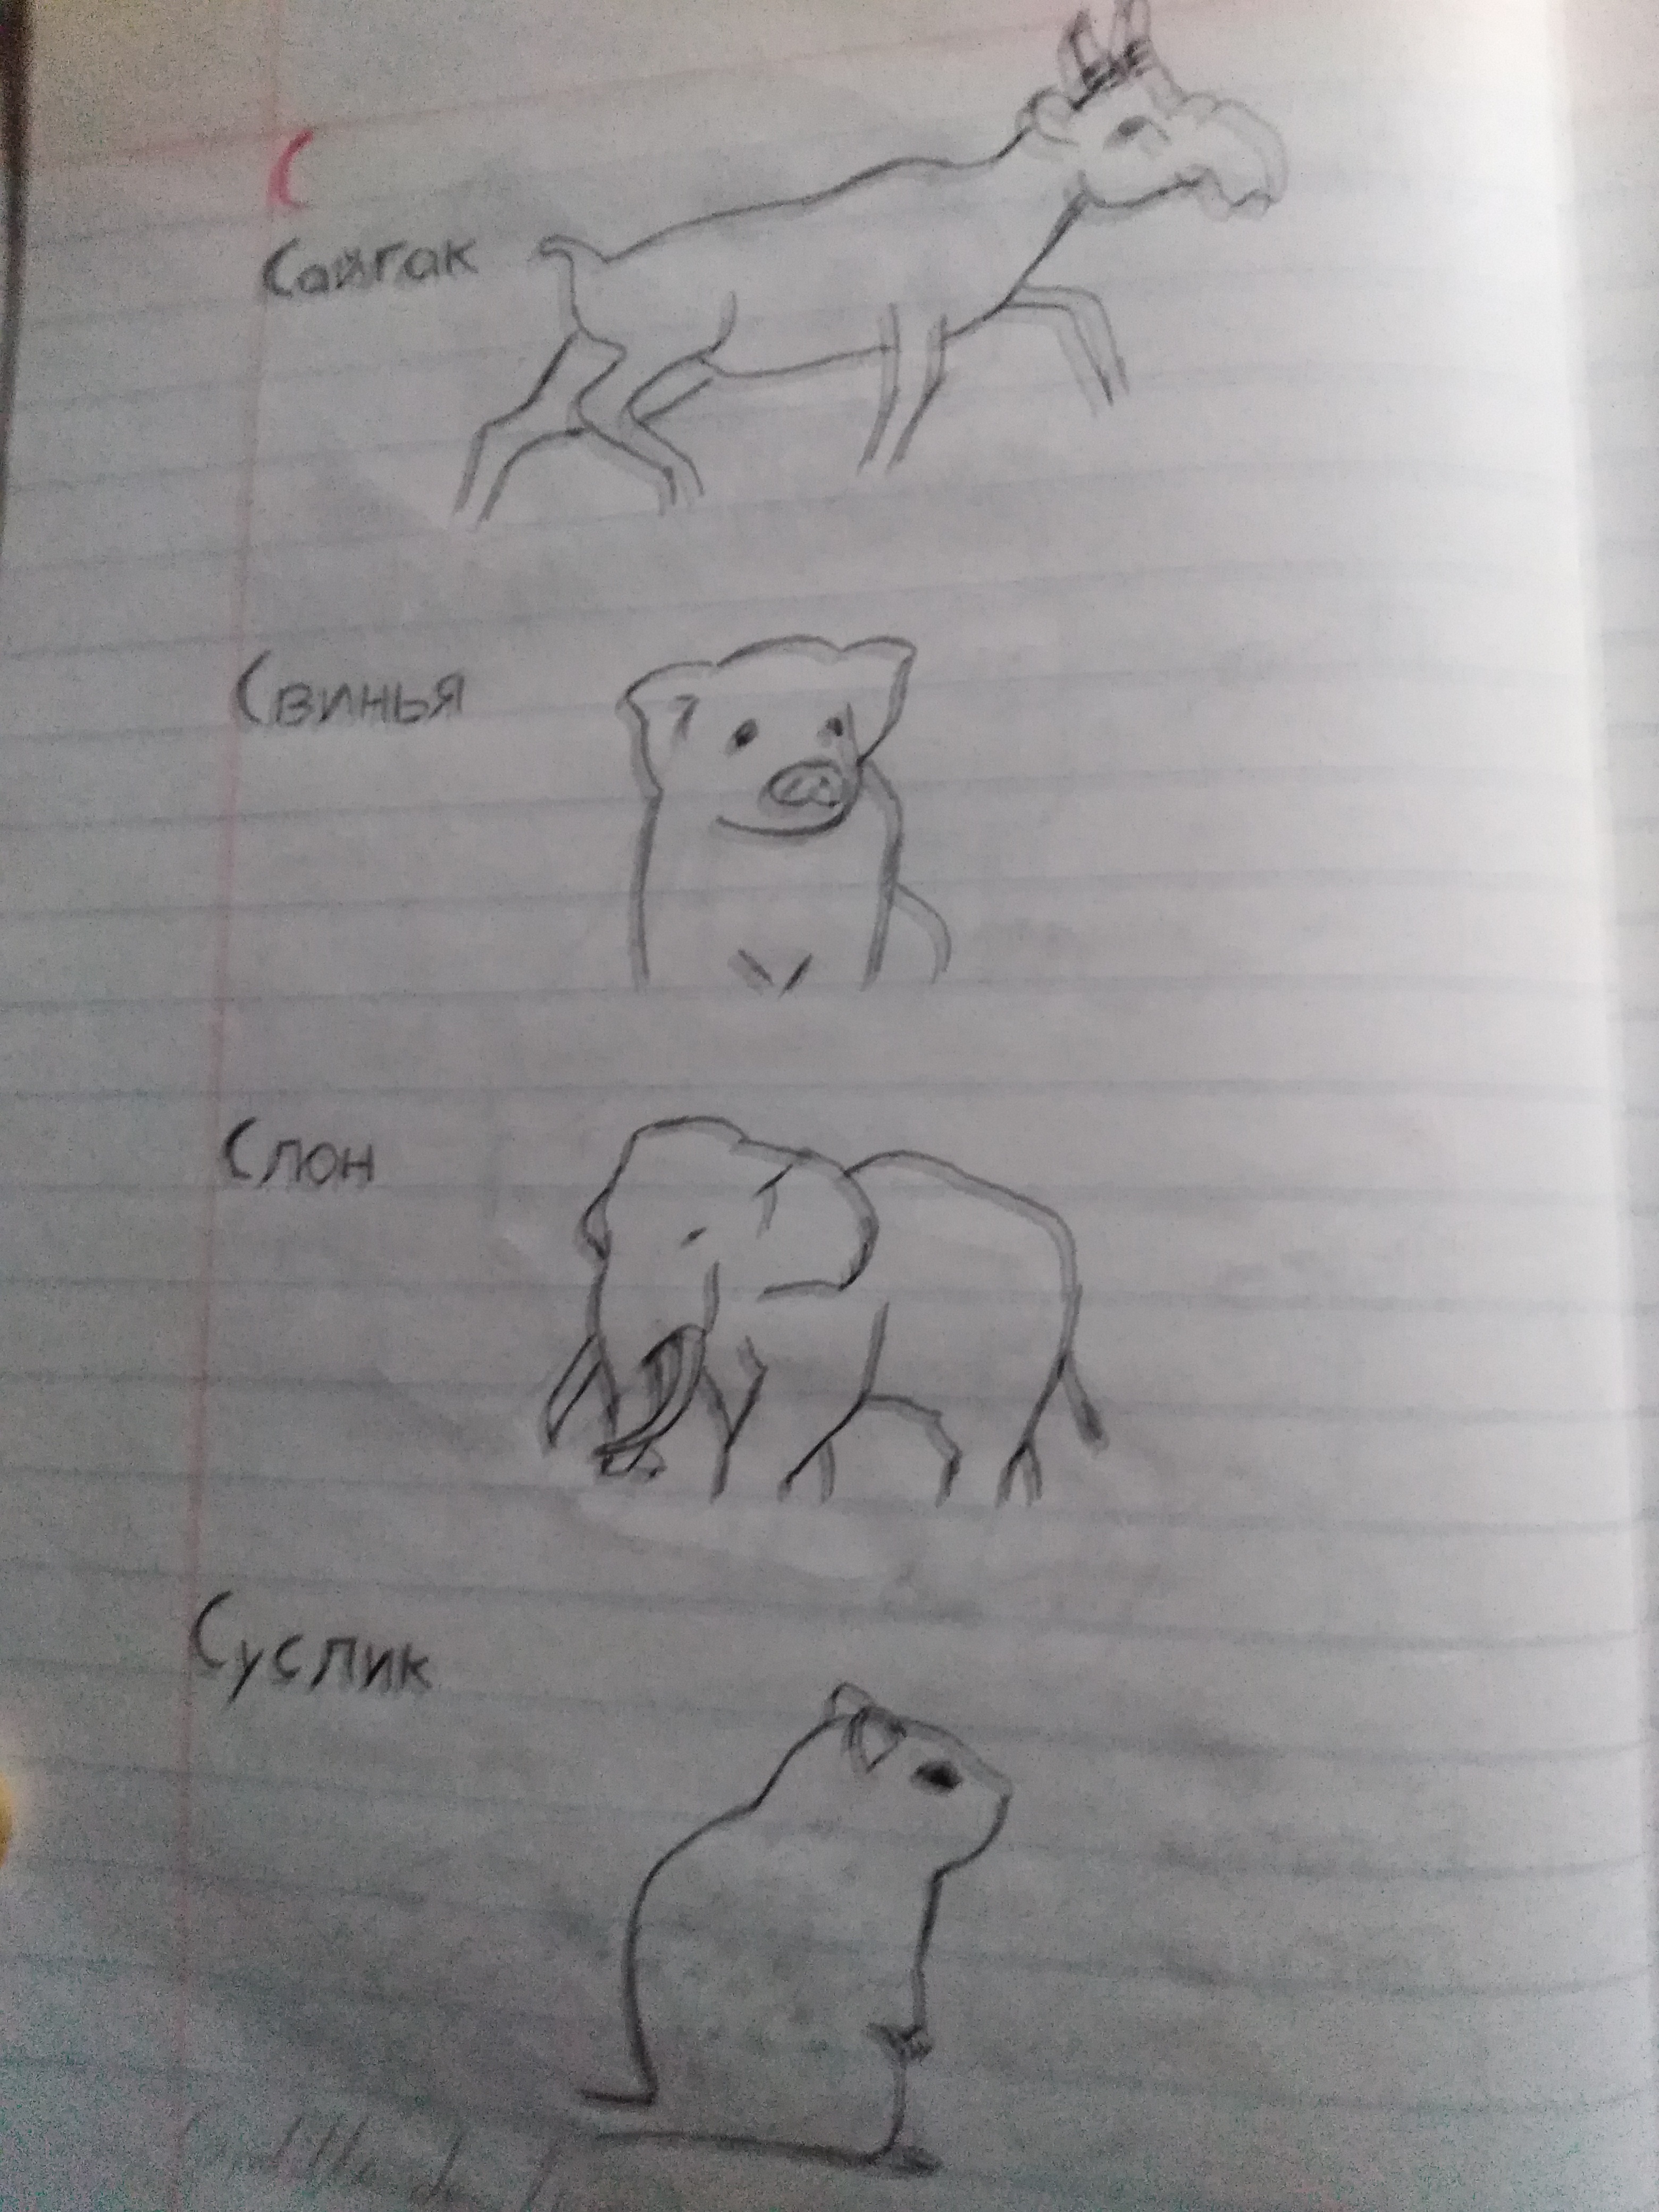 С
Сайгак
Свинья
Слон
Суслик